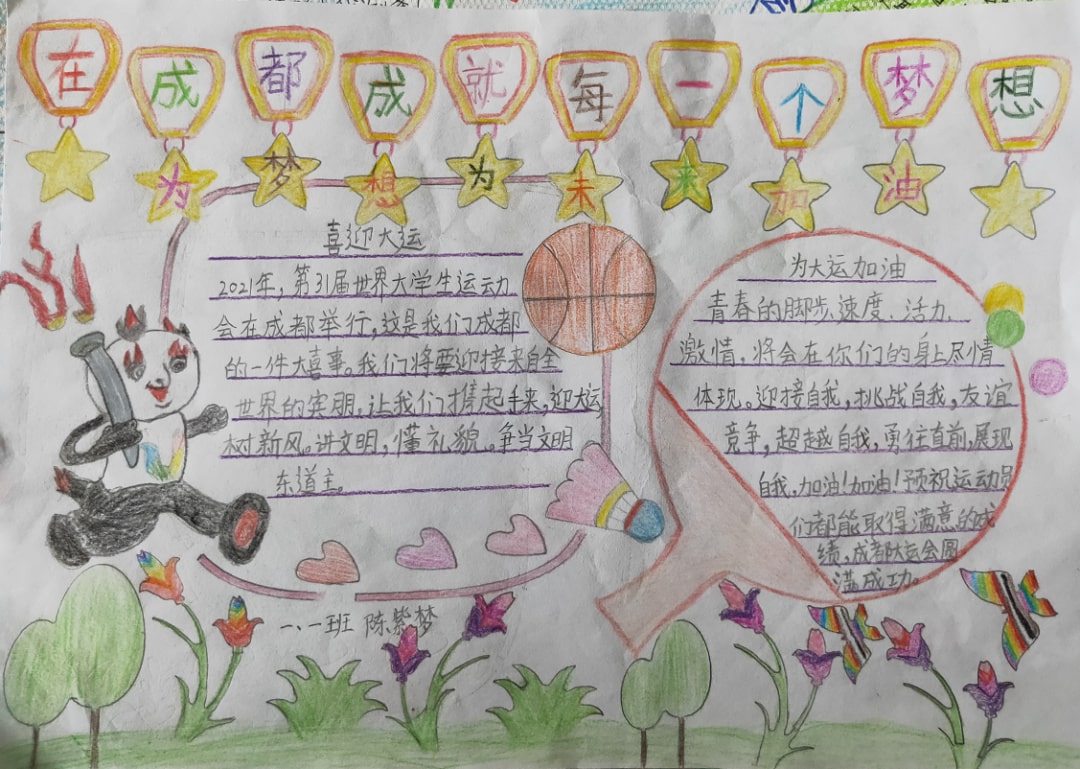 在成都成就每一个梦想
为梦想为未来加油
喜迎大运
2021年，第31届世界大学生运动
会在成都举行，这是我们成都
的一件大喜事。我们将要迎接来自全
世界的宾朋，让我们携起手来，迎大运，
树新风。讲文明，懂礼貌。争当文明
东道主。
为大运加油
青春的脚步、速度、活力、
激情，将会在你们的身上尽情
体现。迎接自我，挑战自我，友谊
竞争，超越自我，勇往直前，展现
自我，加油！加油！预祝运动员
们都能取得满意的成
绩，成都大运会圆
满成功。
一、一班 陈紫梦